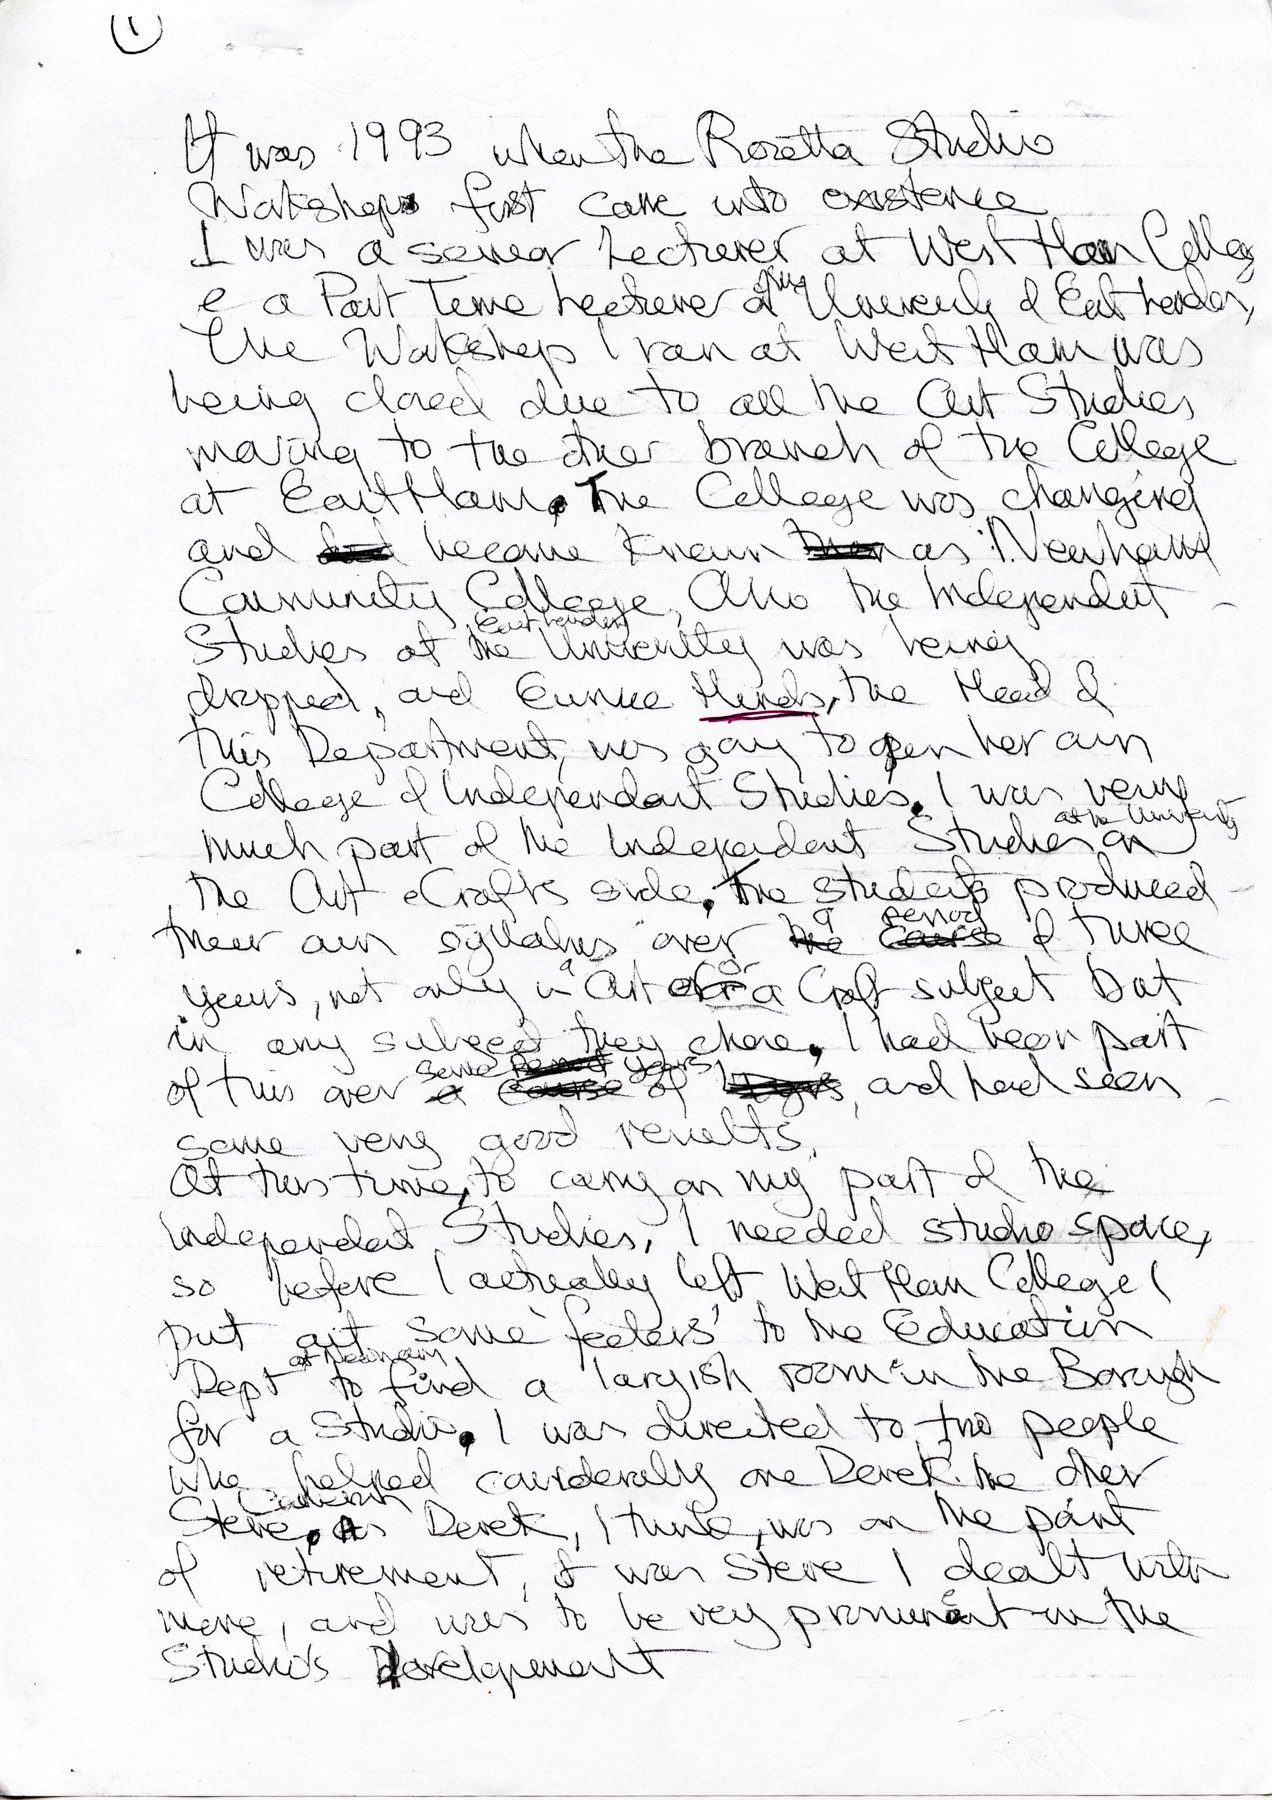 1
It was 1993 when the Rosetta Studio
Workshops first came into existence
I was a senior Lecturer at West Ham College
& a Part Time Lecturer at the University of East London,
The Workshops I ran at West Ham was
being closed due to all the Art Studies
moving to the other branch of the College
at East Ham. The College was changing
and became known as Newham
Community College, Also the Independent
Studies at the East London University was being
dropped, and Eunice Hinds, the Head of
this Department, was going to open her own
College of Independent Studies. I was very
much part of the Independent Studies at the University on
the Art & Crafts side. The students produced
their own syllabus over a period of three
years, not only in a Art or a Craft subject but
in any subject they chose. I had been part
of this over some years, and had seen
some very good results.
At this time, to carry on my part of the
Independent Studies, I needed studio space,
so before I actually left West Ham College I
put out some 'feelers' to the Education
Dept at Newham to find a largish room in the Borough
for a Studio. I was directed to two people
who helped considerably one Derek the other
Steve. As Derek, I think, was on the point
of retirement, it was Steve I dealt with
more, and was to be very prominent in the
Studio's Development